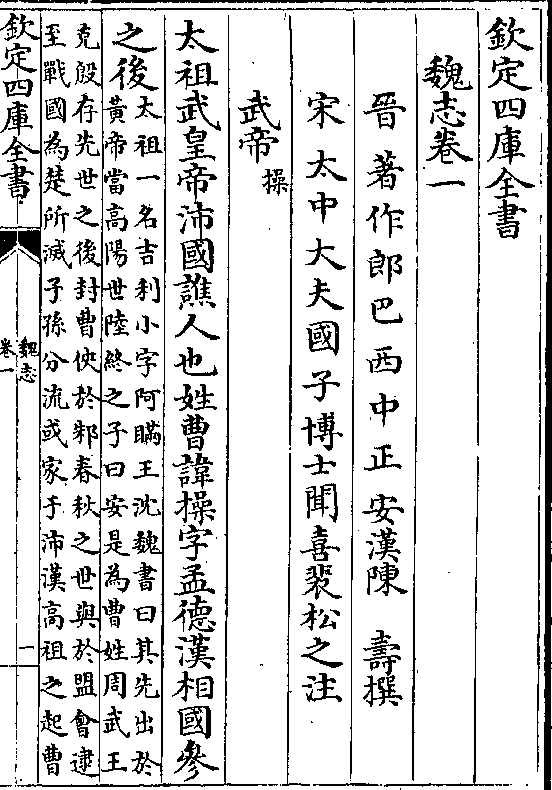 欽定四庫全書
魏志卷一
晉著作郎巴西中正安漢陳壽撰
宋太中大夫國子博士聞喜裴松之注
武帝操
太祖武皇帝沛國譙人也姓曹諱操字孟德漢相國參
之後
太祖一名吉利小字阿瞞王沈魏書曰其先出於
黃帝當高陽世陸終之子曰安是為曹姓周武王
克殷存先世之後封曹俠於邾春秋之世與於盟會逮
至戰國為楚所滅子孫分流或家于沛漢高祖之起曹
欽定四庫全書
魏志
卷一
一